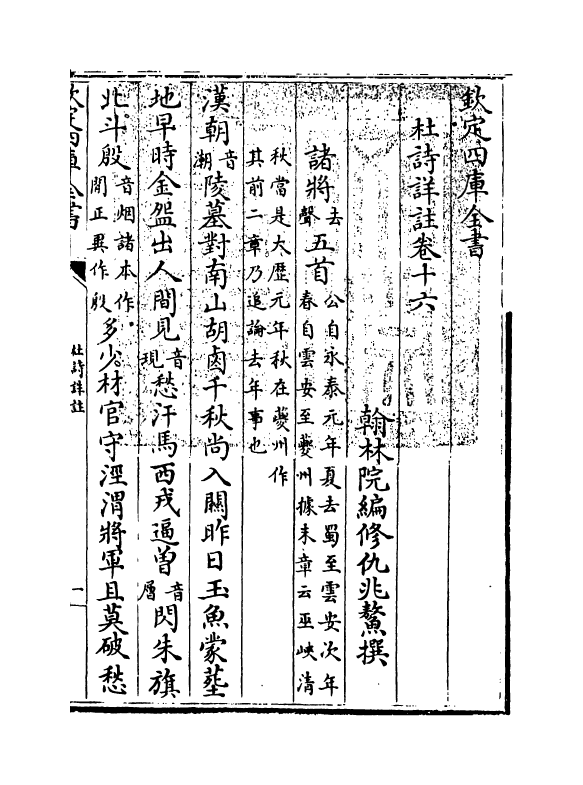 欽定四庫全書
杜詩詳註卷十六
翰林院編修仇兆鰲撰
諸將去聲五首公自永泰元年夏去蜀至雲安次年春自雲安至夔州據末章云巫峽清
秋當是大歷元年秋在夔州作其前二章乃追論去年事也
漢朝音潮陵墓對南山胡鹵千秋尚入關昨日玉魚蒙塟
地早時金盌出人間見音現愁汗馬西戎逼曾音層閃朱旗
北斗殷音烟諸本作閒正異作殷多少材官守涇渭將軍且莫破愁
杜詩詳註
一